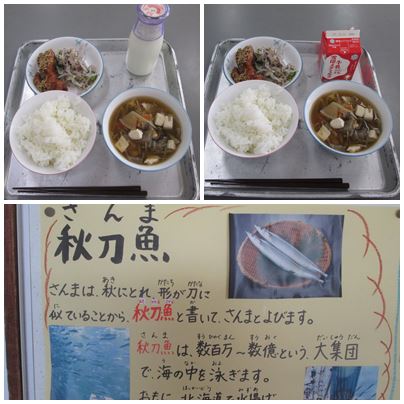 さんま
秋刀魚
さんまは、秋にとれ、形が刀に
似ていることから、秋刀魚と書いて、さんまとよびます。
秋刀魚は、数百万～数億という、大集団
で、海の中を泳ぎます。
おもに、北海道で水揚げ